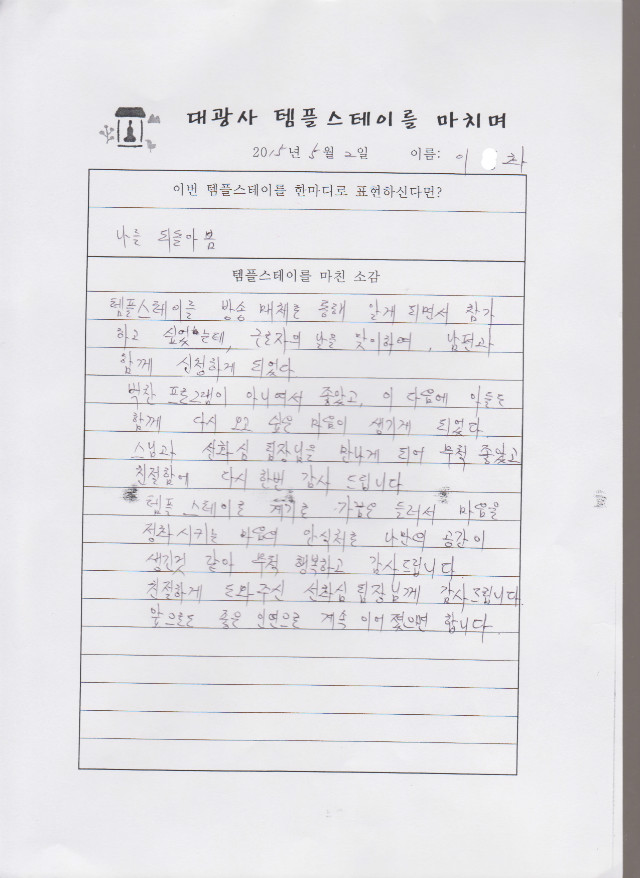 대광사 템플스테이를 마치며
2015년 5월 2일 이름: 이 차
이번 템플스테이를 한마디로 표현하신다면?
나를 되돌아 봄
템플스테이를 마친 소감
템플스테이를 방송 매체를 통해 알게 되면서 참가
하고 싶었는데, 근로자의 날을 맞이하여, 남편과
함께 신청하게 되었다
벅찬 프로그램이 아니여서 좋았고, 이 다음에 아들도
함께 다시 오고 싶은 마음이 생기게 되었다.
스님과 선화심 팀장님을 만나게 되어 무척 좋았고
친절함에 다시 한번 감사 드립니다
템플 스테이를 계기로 가끔은 들러서 마음을
정화시키는 마음의 안식처로 나만의 공간이
생긴것 같아 무척 행복하고 감사드립니다.
친절하게 도와주신 선화심 팀장님께 감사드립니다.
앞으로도 좋은 인연으로 계속 이어졌으면 합니다.